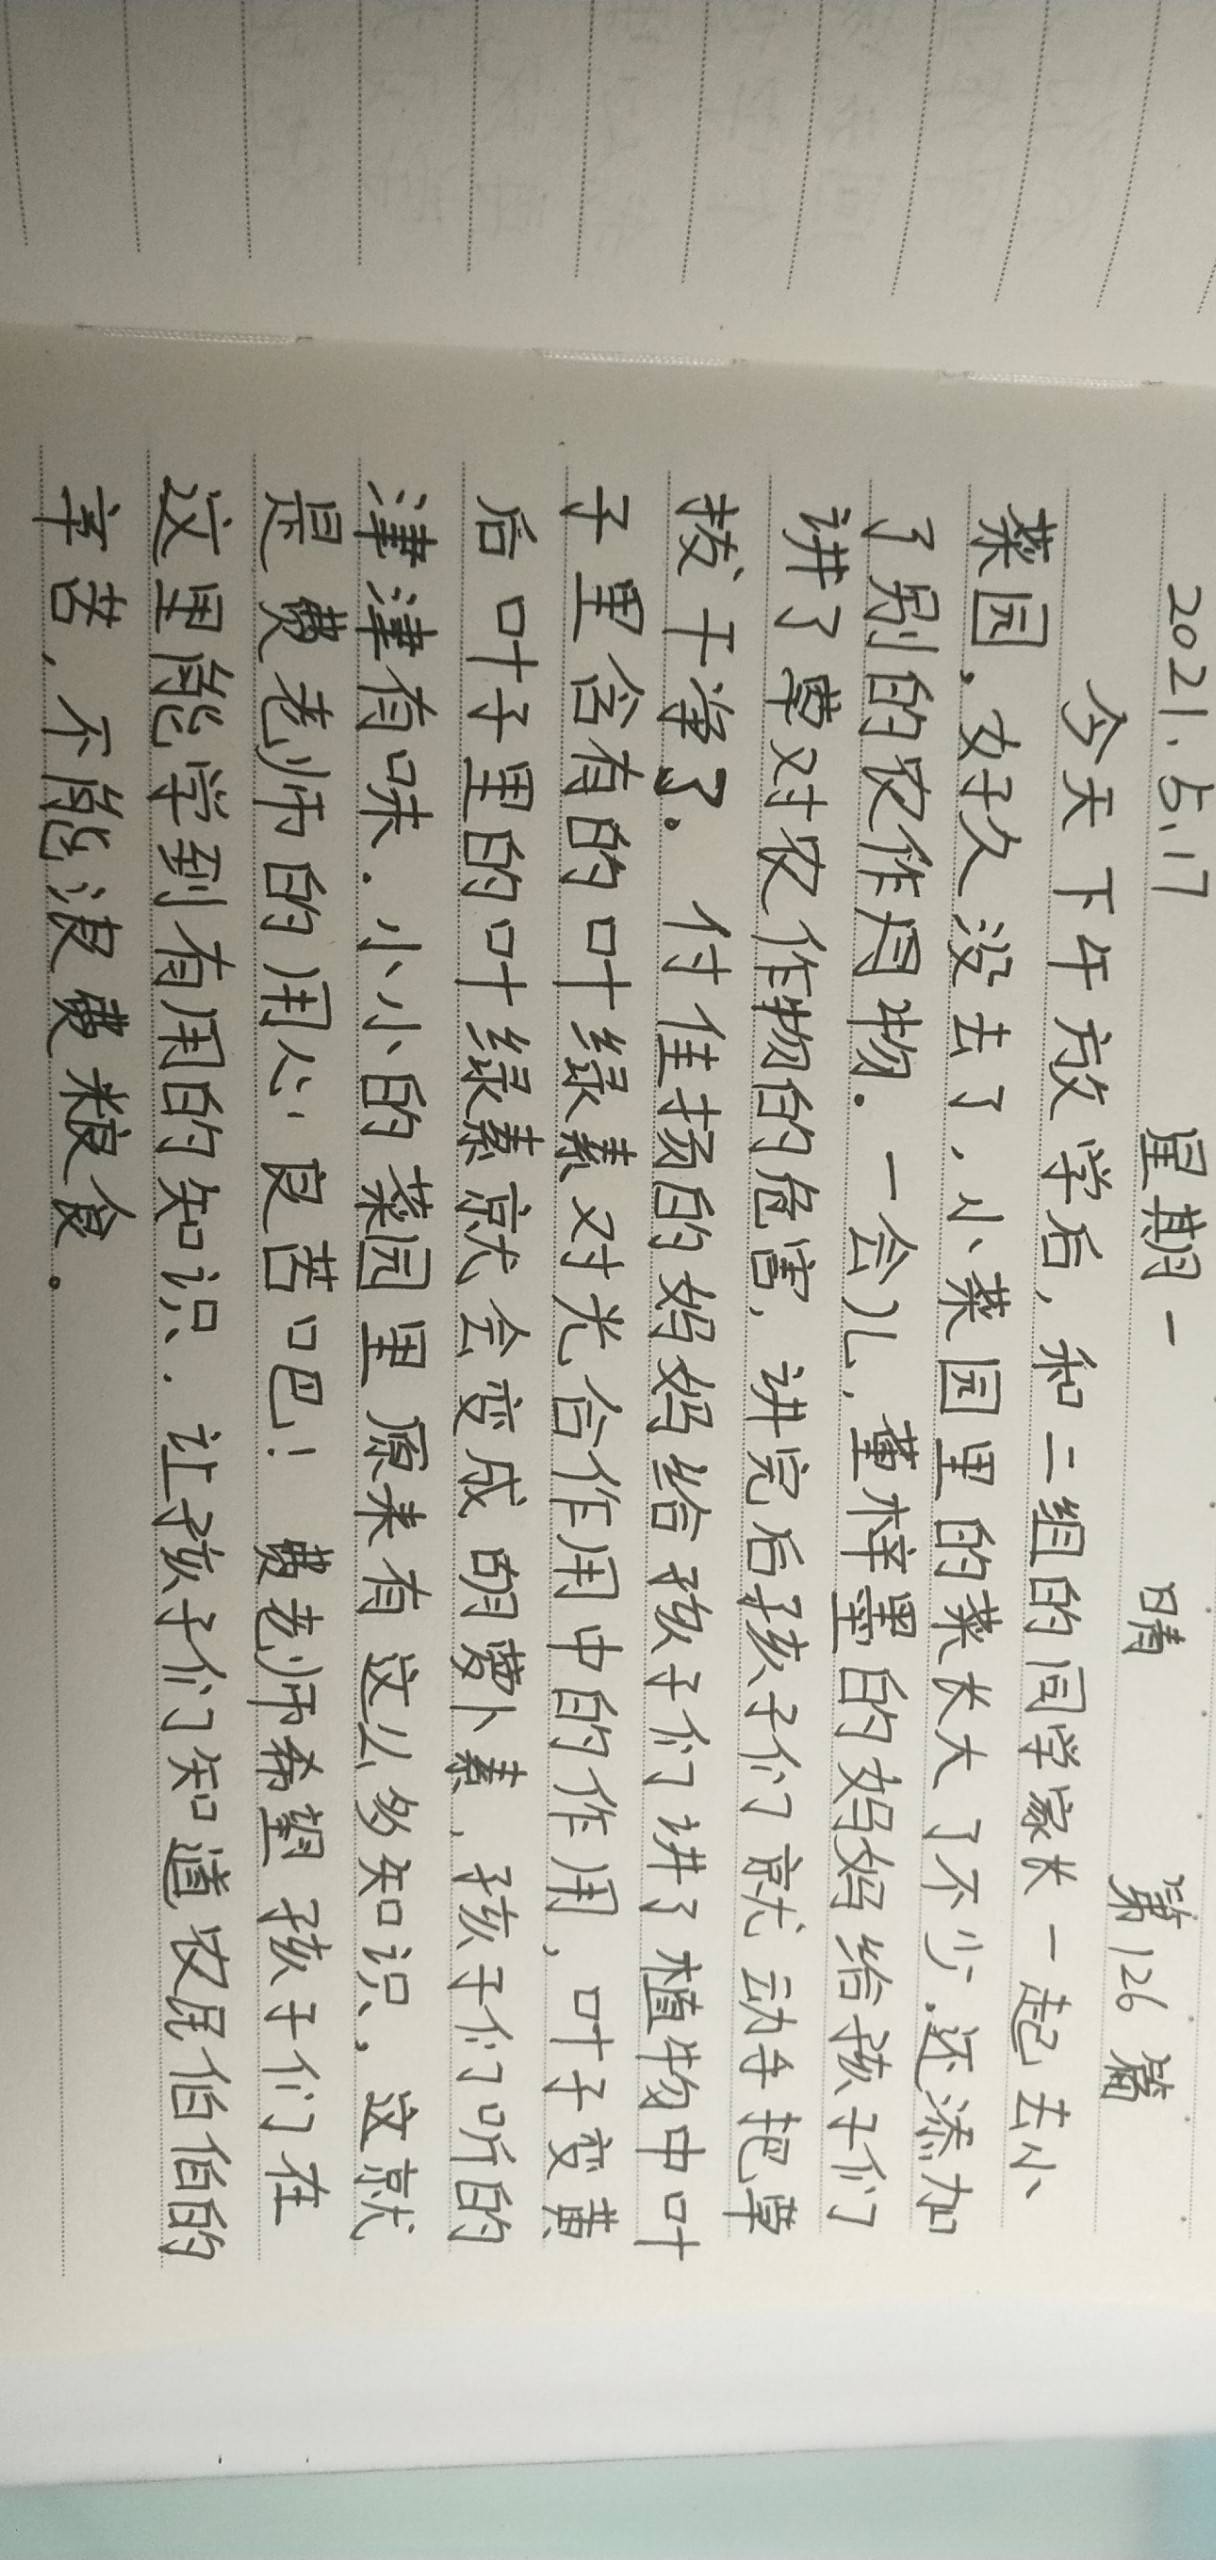 2021.5.17 星期一 晴 第126篇
今天下午放学后,和二组的同学家长一起去小
菜园。好久没去了,小菜园里的菜长大了不少.还添加
了别的农作用物.一会儿,董梓墨的妈妈给孩子们
讲了草对农作物的危害,讲完后孩子们就动手把草
拔干净了。付佳扬的妈妈给孩子们讲了植物中叶
子里含有的叶绿素对光合作用中的作用,叶子变黄
后叶子里的叶绿素就会变成胡萝卜素,孩子们听的
津津有味.小小的菜园里原来有这么多知识.这就
是费老师的用心良苦吧!费老师希望孩子们在
这里能学到有用的知识.让孩子们知道农民伯伯的
辛苦,不能浪费粮食。